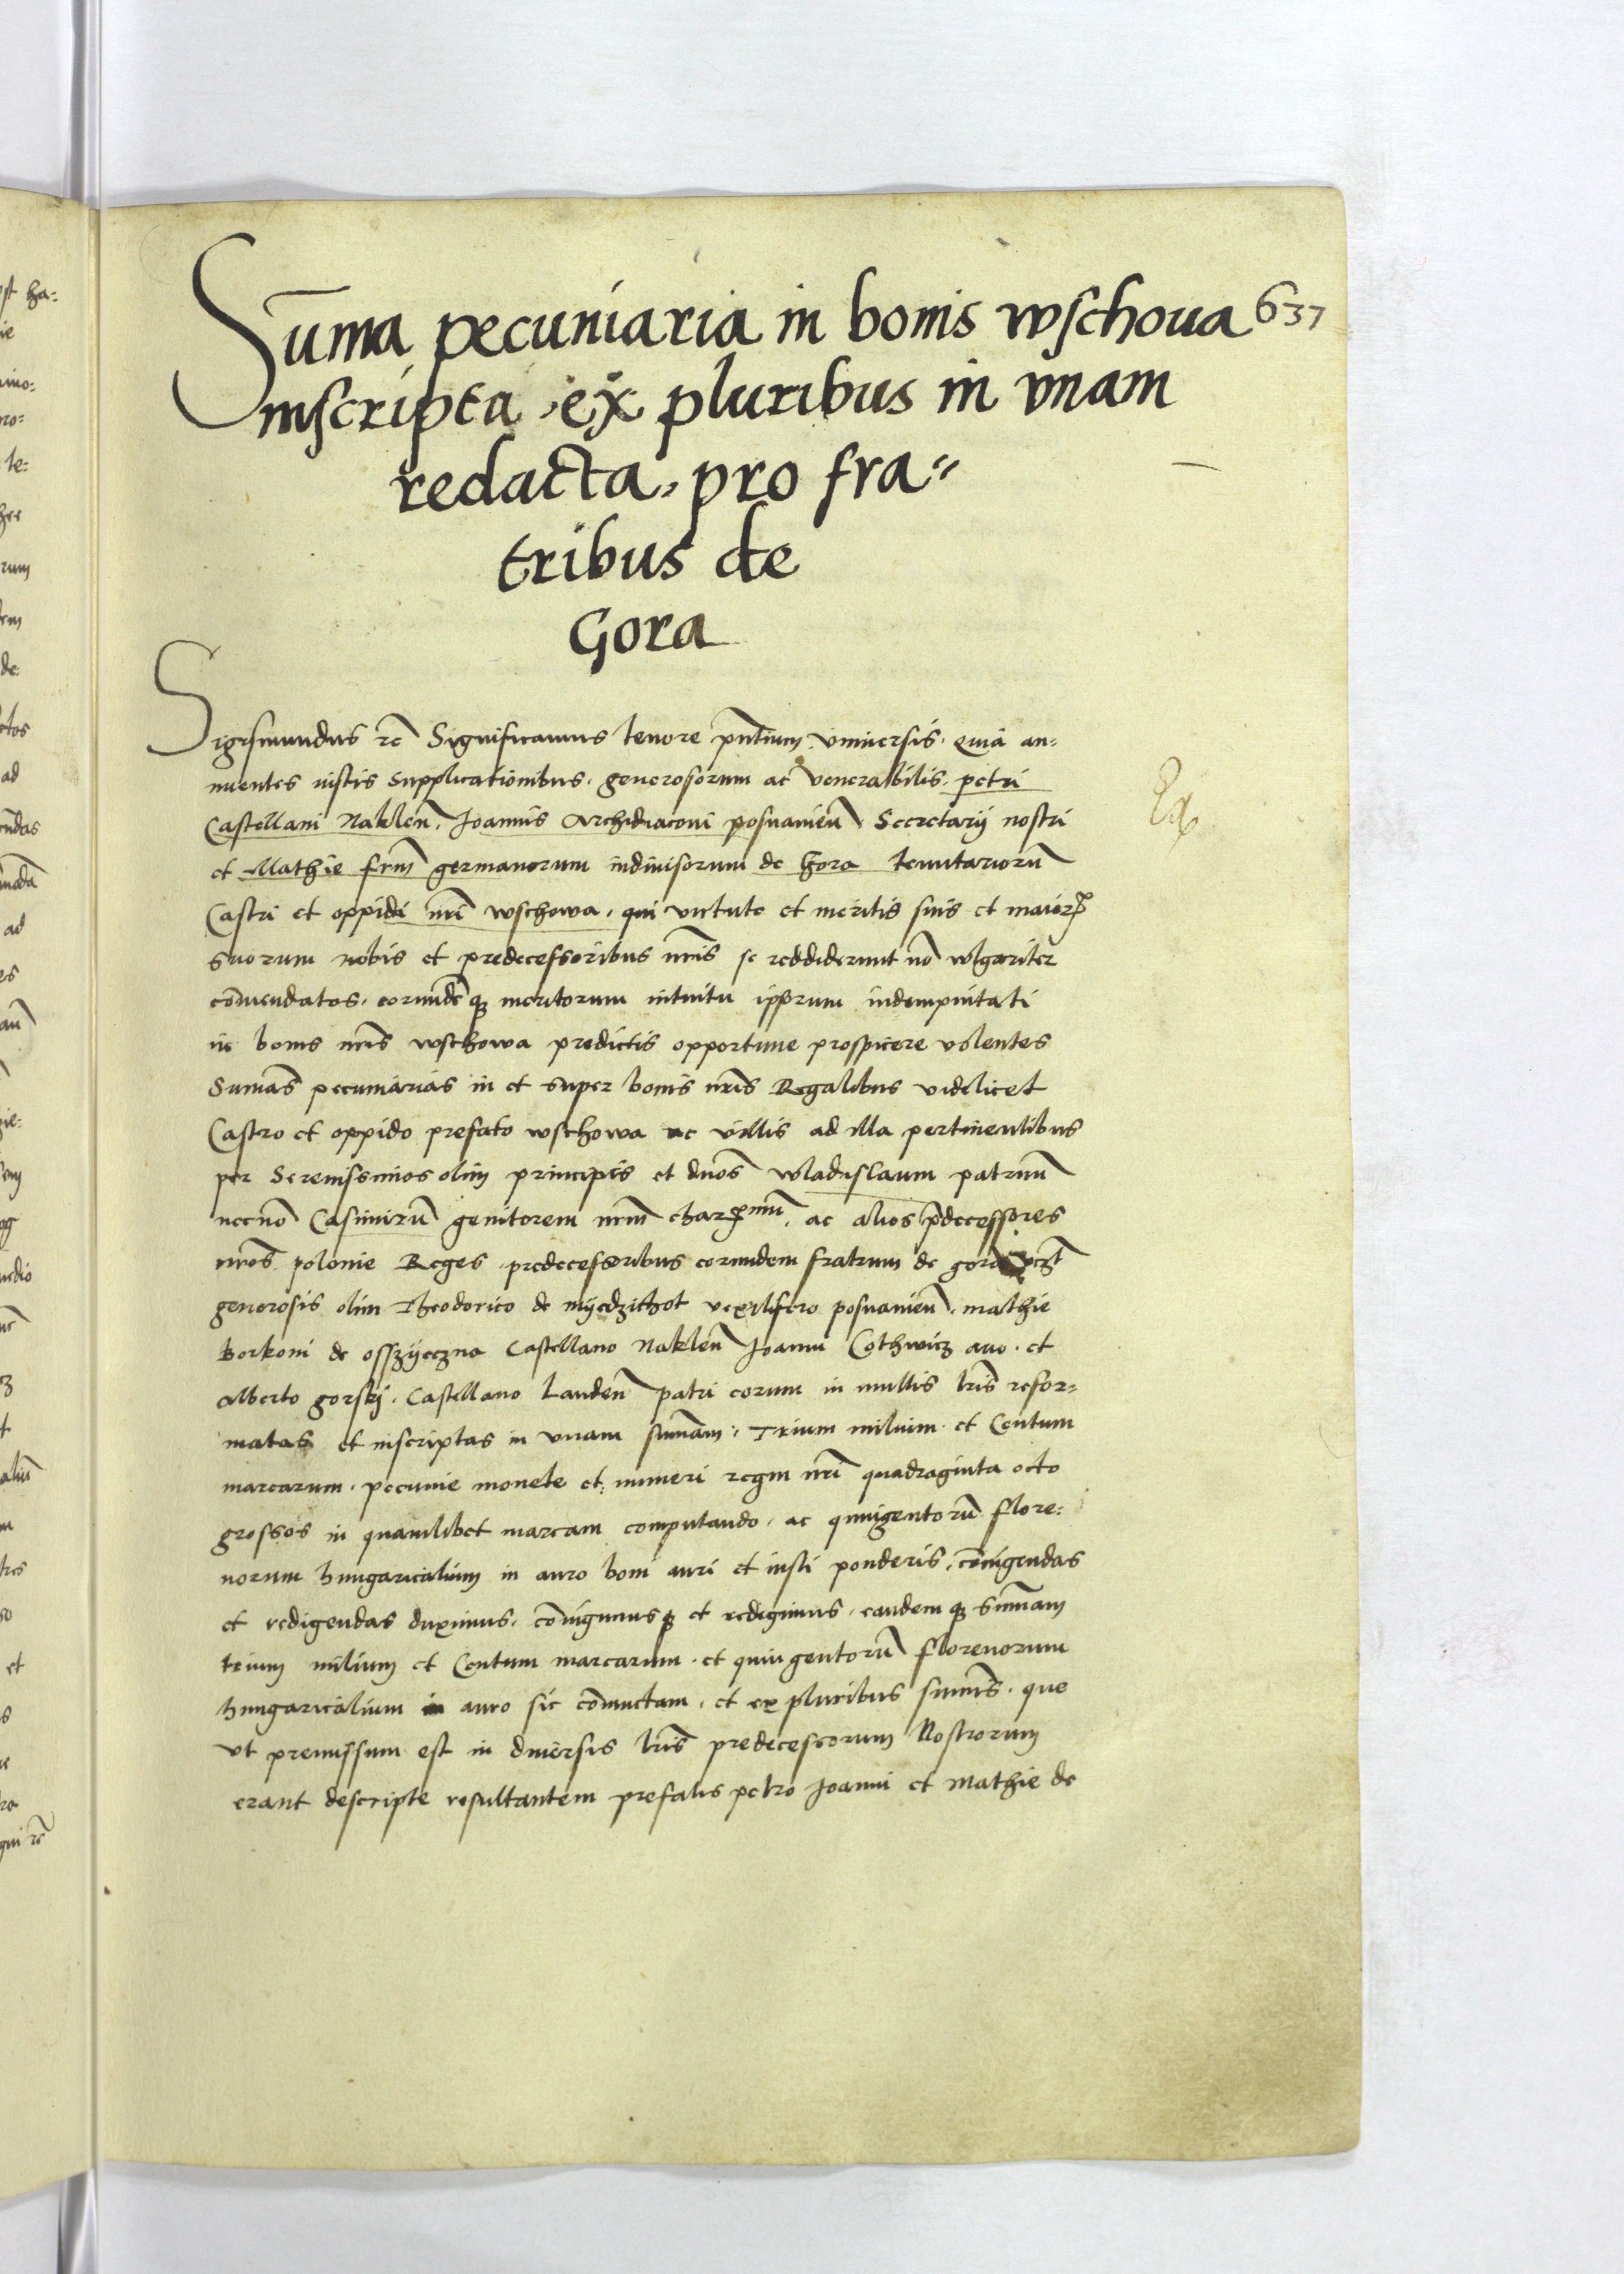 637
Suma pecuniaria in bonis wschoua
inscripta ex pluribus in vnam
redacta, pro fra=
tribus de
Gora
Sigismundus rc̄ Significamus tenore pn̄tium vniuersis quia an=
nuentes iustis supplicationibus generosorum ac venerabilis petri
Castellani Naklen̄ Joannis Archidiaconi posnanien̄ Secretarij nostri
et Mathie frm̄ germanorum indiuisorum de Gora tenutariorū
Castri et oppidi nrī wschowa, qui virtute et meritis suis et maiorꝝ
suorum nobis et predecessoribus nrīs se reddiderunt nō wlgariter
cōmendatos, eorundēqꝫ meritorum intuitu ipsorum indempnitati
in bonis nrīs wschowa predictis opportune prospicere volentes
Sumās pecuniarias in et super bonis nrīs Regalibus videlicet
Castro et oppido prefato wschowa ac villis ad illa pertinentibus
per Serenissimos olim principes et dnōs wladislaum patruū
necnō Casimirū genitorem nrm̄ charꝪmū, ac alios p̄decessores
nrōs polonie Reges predecessoribus eorundem fratrum de gora
generosis olim Theodorico de myedzichot vexilifero posnanien̄ mathie
Borkoni de osszyeczna Castellano Naklen̄ Joanni Cothwicz auo et
Alberto gorskj Castellano Landen̄ patri eorum in multis lrīs refor=
matas et inscriptas in vnam sumām, Trium milium et Centum
marcarum pecunie monete et numeri regni nrī quadraginta octo
grossos in quamlibet marcam computando, ac quingentorū flore=
norum hungaricalium in auro boni auri et iusti ponderis, cōiūgendas
et redigendas duximus, cōiūgimusqꝫ et redigimus, eandemqꝫ sumām
trium milium et Centum marcarum et quingentorū florenorum
hungaricalium in auro sic cōiunctam, et ex pluribus sumīs, que
vt premissum est in diuersis lrīs predecessorum Nostrorum
erant descripte resultantem prefatis petro Joanni et Mathie de